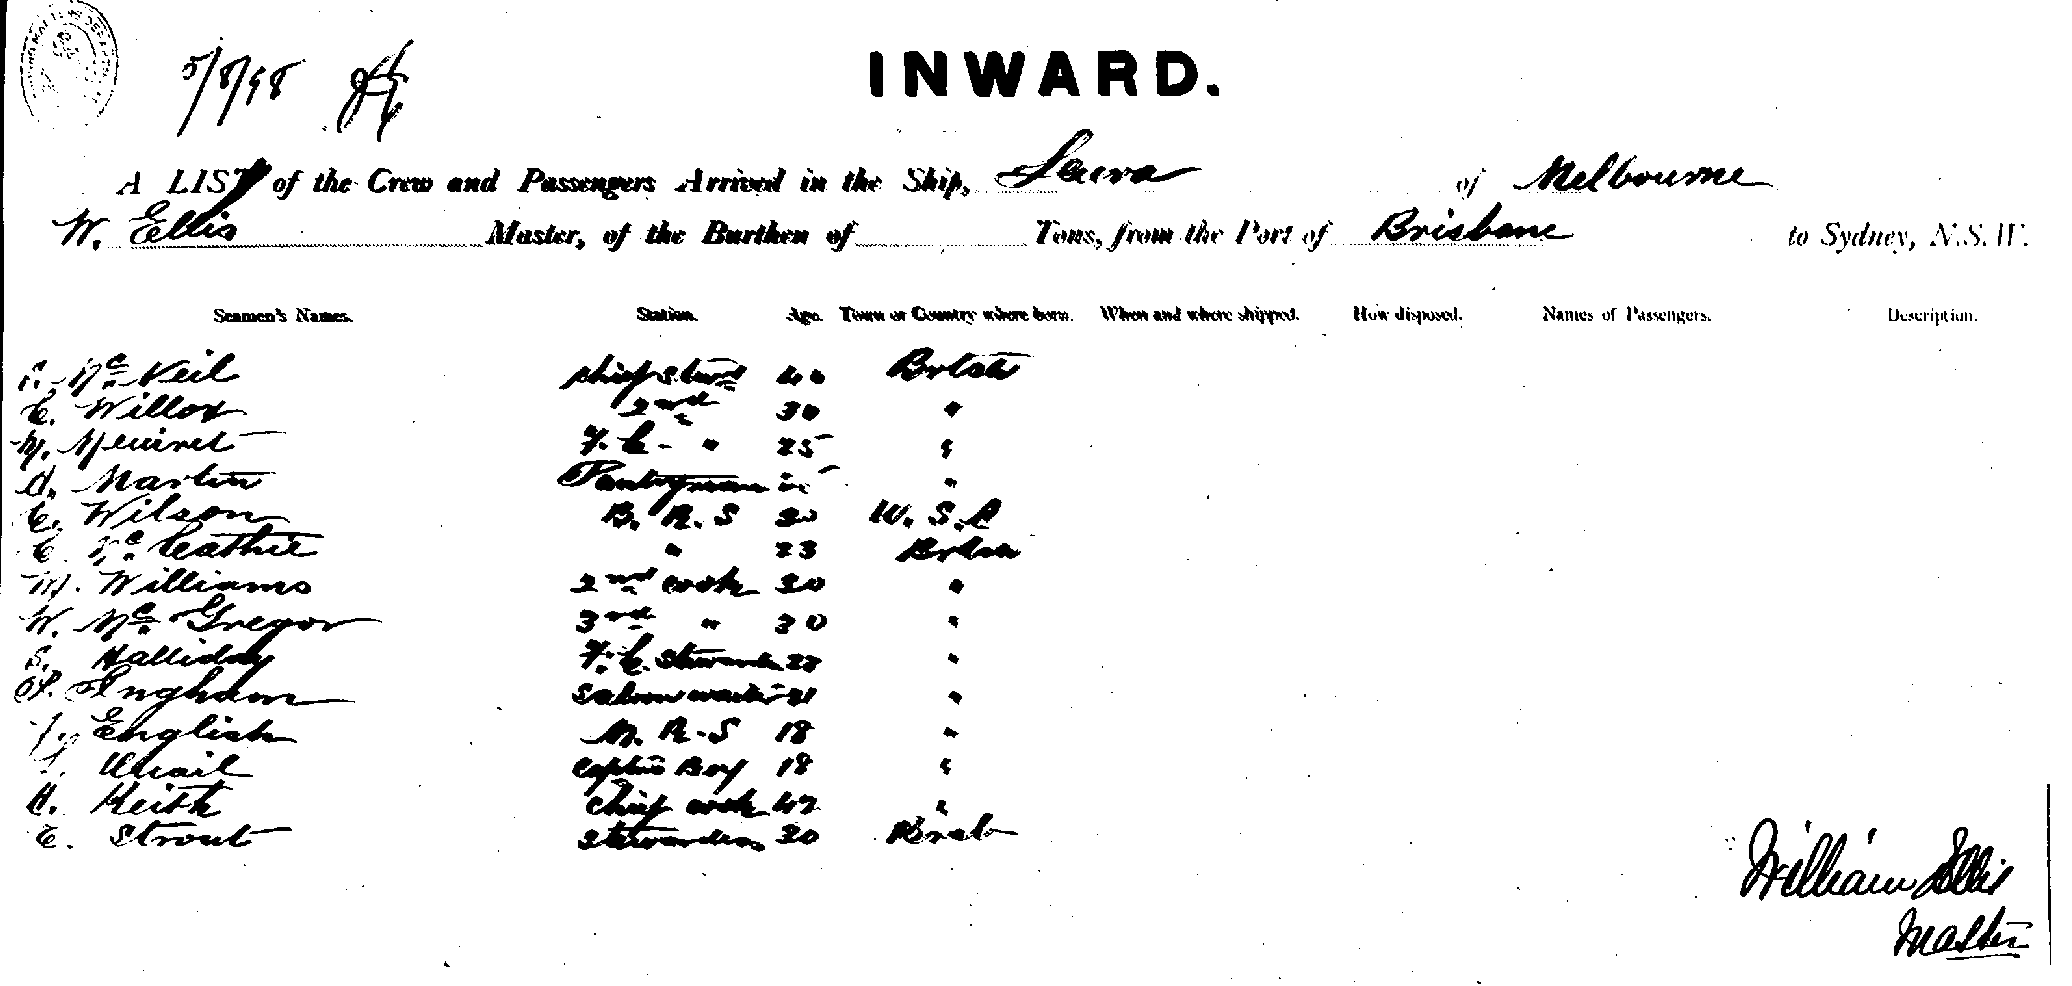 5/8/98
INWARD.
A LIST of the Crew and Passengers Arrived in the Ship, of Melbourne
W. Ellis Master, of the Burthen of Tons, from the Port of Brisbane to Sydney, N.S.W.
Seamen's Names. Station. Age. Town or Country where born. When and where shipped. How disposed. Names of Passengers. Description.
Mc Neil 40
C. Willox 2nd " 30 "
F. C. " 25 "
Martin Pantryman "
C. Wilson B. R. S 20
C. Mc Cathie " 23
M. Williams 2nd cook 20 "
W. Mc Gregor 3rd " 20 "
S. Halliday F. C. "
Ingham Saloon waiter 21 "
English M. R. S 18 "
Quail Boy 18 "
H. Keith Chief cook 47 "
E. Strout Stewardess 30
William Ellis
Master